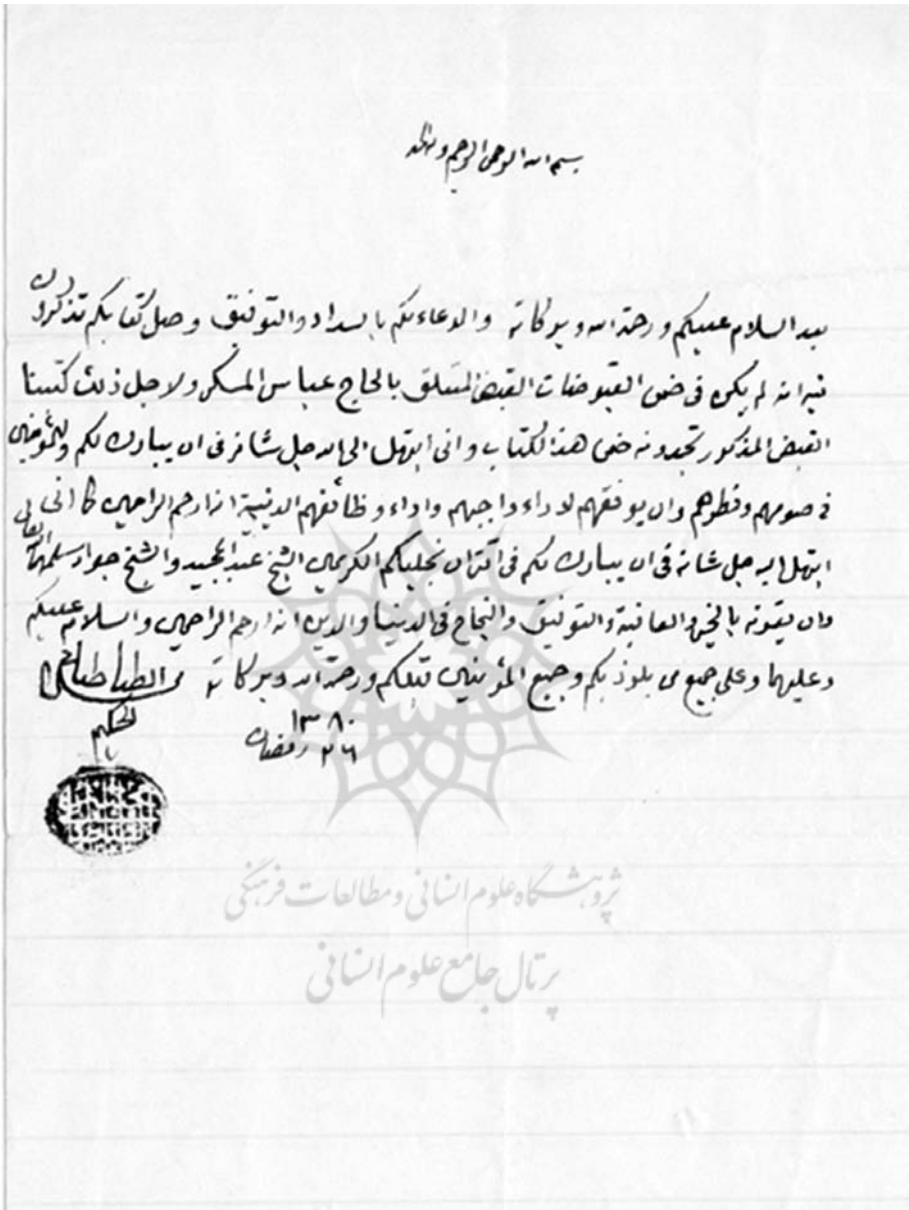 بسم الله الرحمن الرحيم وله الحمد
بعد السلام عليكم ورحمة الله وبركاته والدعاء لكم بالسداد والتوفيق وصل كتابكم تذكرون
فيه انه لم يكن في ضمن القبوضات القبض المتعلق بالحاج عباس المسكي ولاجل ذلك كتبنا
القبض المذكور تجدونه ضمن هذا الكتاب واني ابتهل الى الله جل شانه في ان يبارك لكم وللمؤمنين
في صومهم وفطرهم وان يوفقهم لاداء واجبهم واداء وظائفهم الدينية انه ارحم الراحمين كما اني
ابتهل اليه جل شانه في ان يبارك لكم في اقتران نجليكم الكريمين الشيخ عبد المجيد والشيخ جواد سلمهما الله تعالى
وان يقرنه بالخير والعافية والتوفيق والنجاح في الدنيا والدين انه ارحم الراحمين والسلام عليكم
وعليهما وعلى جميع من يلوذ بكم وجميع المؤمنين قبلكم ورحمة الله وبركاته
محسن الطباطبائي
الحكيم
١٣٨٠
٢٦ رمضان
پژوهشگاه علوم انسانی و مطالعات فرهنگی
پرتال جامع علوم انسانی